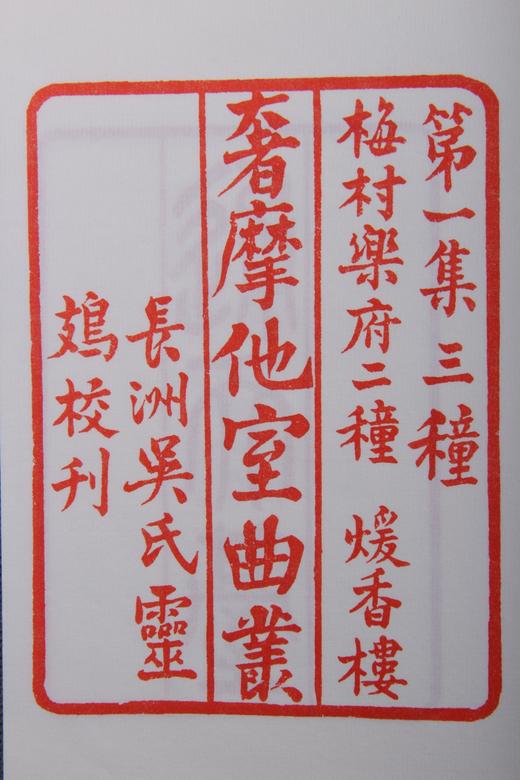 第一集三種
梅村樂府二種 煖香樓
奢摩他室曲叢
長洲吳氏靈
鳷校刊